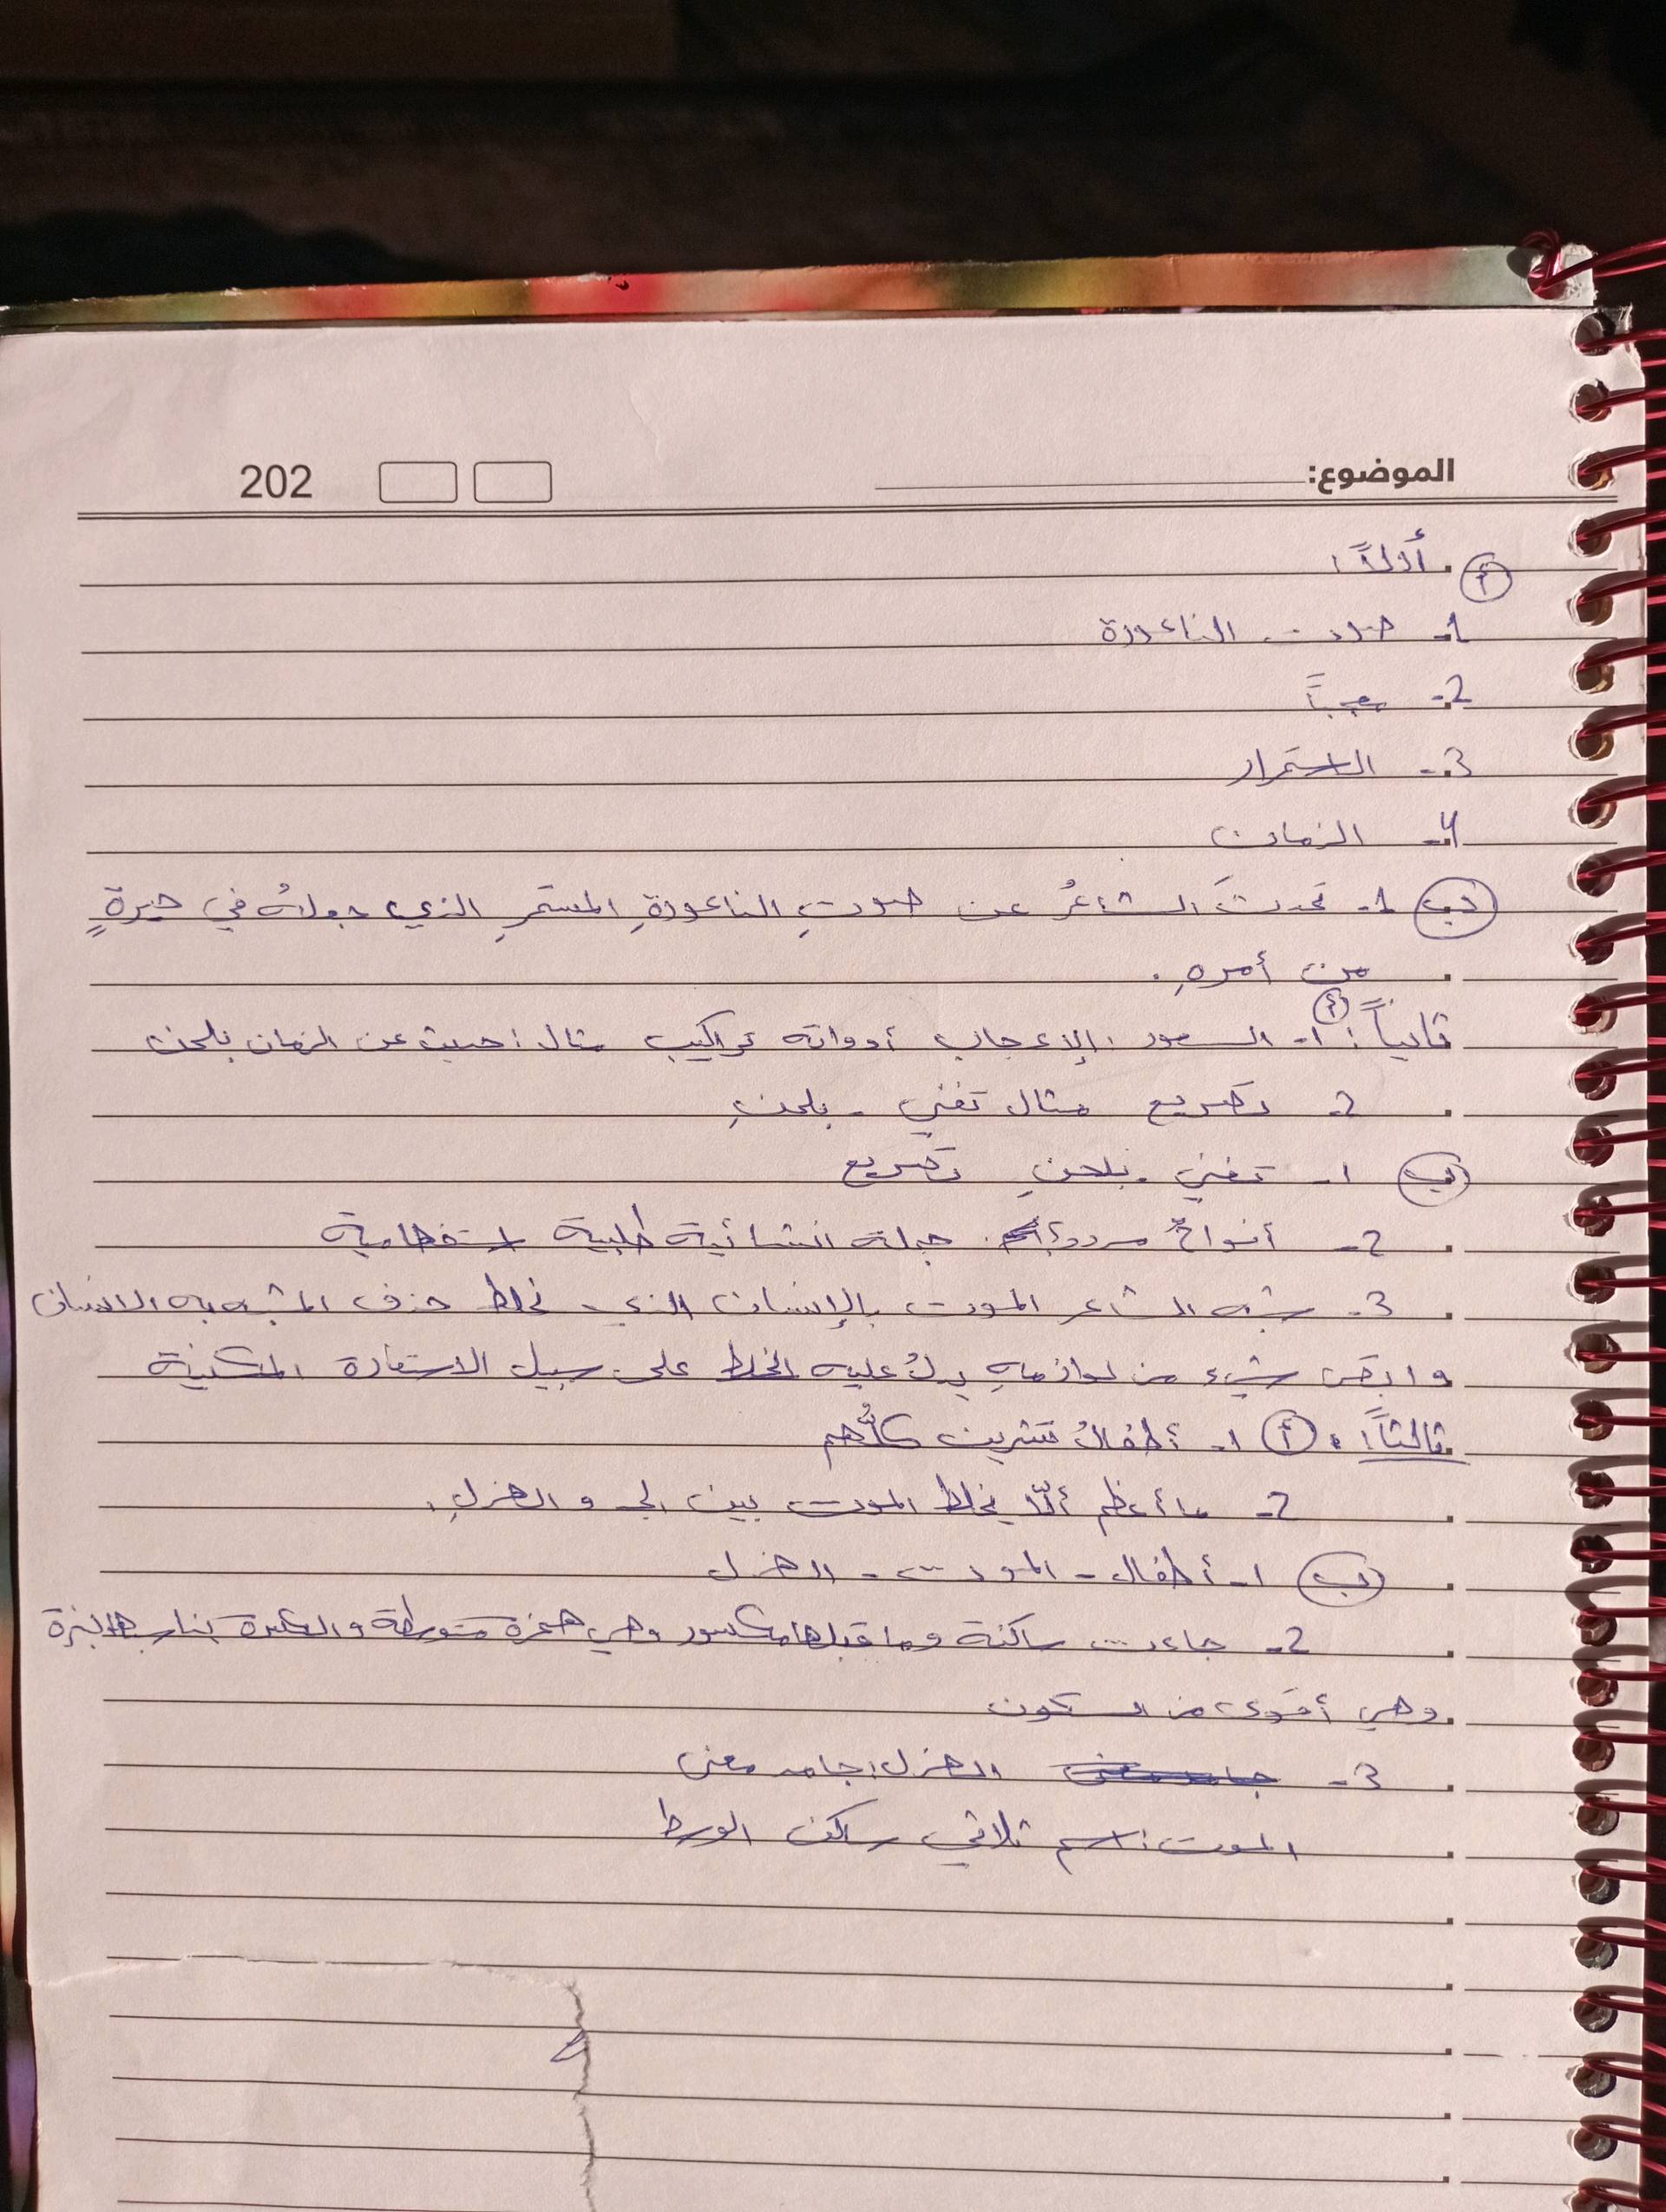 الموضوع:
202
أ. أولاً:
1- صوت الناعورة
2- عجباً
3- الاستمرار
4- الزمان
ب 1- تحدثَ الشاعرُ عن صوتِ الناعورةِ المستمرِ الذي جعلهُ في حيرةٍ
من أمرهِ.
ثانياً: أ 1- الشعور: الإعجاب أدواته تراكيب مثال: حديث عن الزمان بلحن
2- تصريع مثال تغني - بلحنِ
ب 1- تغني - بلحنِ تصريع
2- أنواحٌ جملة انشائية طلبية استفهامية
3- شبه الشاعر الموت بالإنسان الذي يخلط حذف المشبه به الانسان
وابقى شيء من لوازمهِ يدلُ عليه الخلط على سبيل الاستعارة المكنية
ثالثاً: أ 1- أطفالُ تشرين كلُّهم
2- ما أعظم ألّا يخلط الموت بين الجد و الهزلِ.
ب 1- أطفال - الموت - الهزل
2- جاءت ساكنة وما قبلها مكسور وهي همزة متوسطة والكسرة يناسبها النبرة
وهي أقوى من السكون
3- جامد معنى الهزل: جامد معنى
الموت: اسم ثلاثي ساكن الوسط